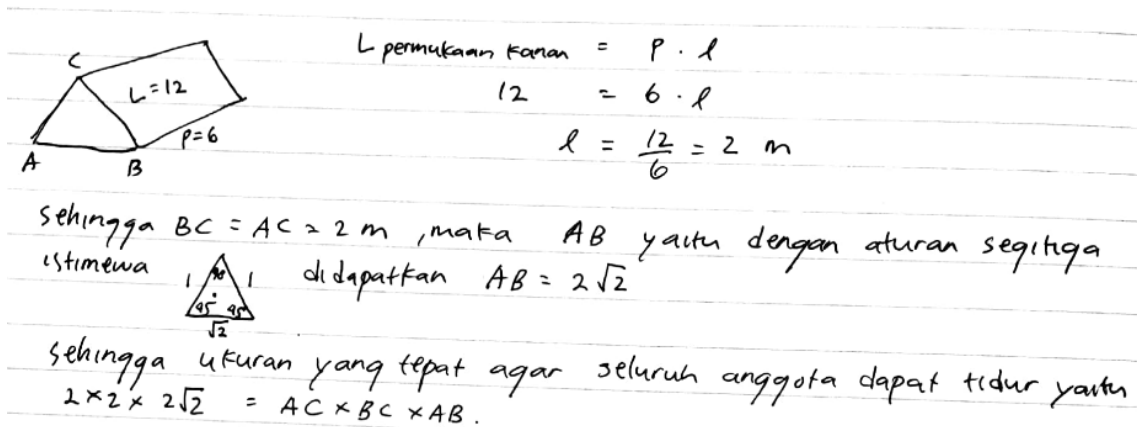 C
L = 12
P = 6
A
B
L permukaan kanan = P . l
12 = 6 . l
l = 12/6 = 2 m
sehingga BC = AC = 2 m , maka AB yaitu dengan aturan segitiga
istimewa 1 90° 1 45° 45° √2 didapatkan AB = 2√2
sehingga ukuran yang tepat agar seluruh anggota dapat tidur yaitu
2 × 2 × 2√2 = AC × BC × AB .